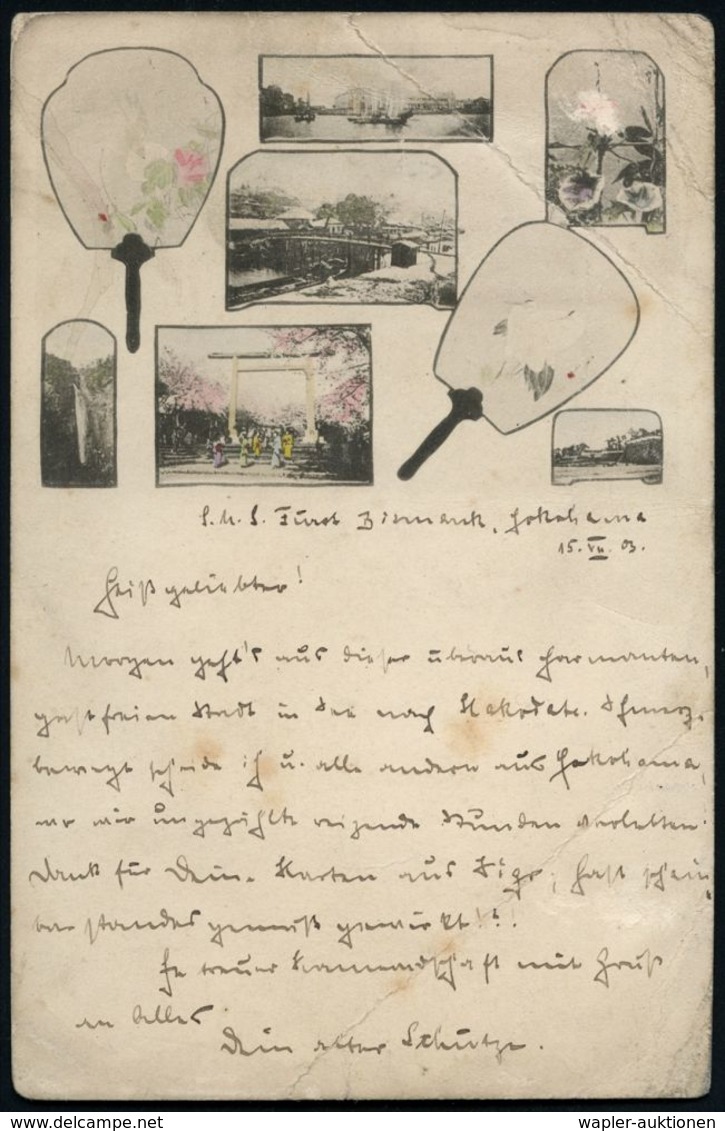 S.M.S. Fürst Bismarck, Yokohama
15. VII. 03.
Heißgeliebter!
Morgen geht's aus dieser überaus charmanten,
gastfreien Stadt in See nach Hakodate. Schmerz-
bewegt scheide ich u. alle andern aus Yokohama,
wo wir ungezählte reizende Stunden verlebten.
Dank für Dein. Karten aus; hast schein-
bar standesgemäß gewirkt!!!
In treuer Kameradschaft mit Gruß
an Alles
Dein alter Schultze.
wapler-auktionen